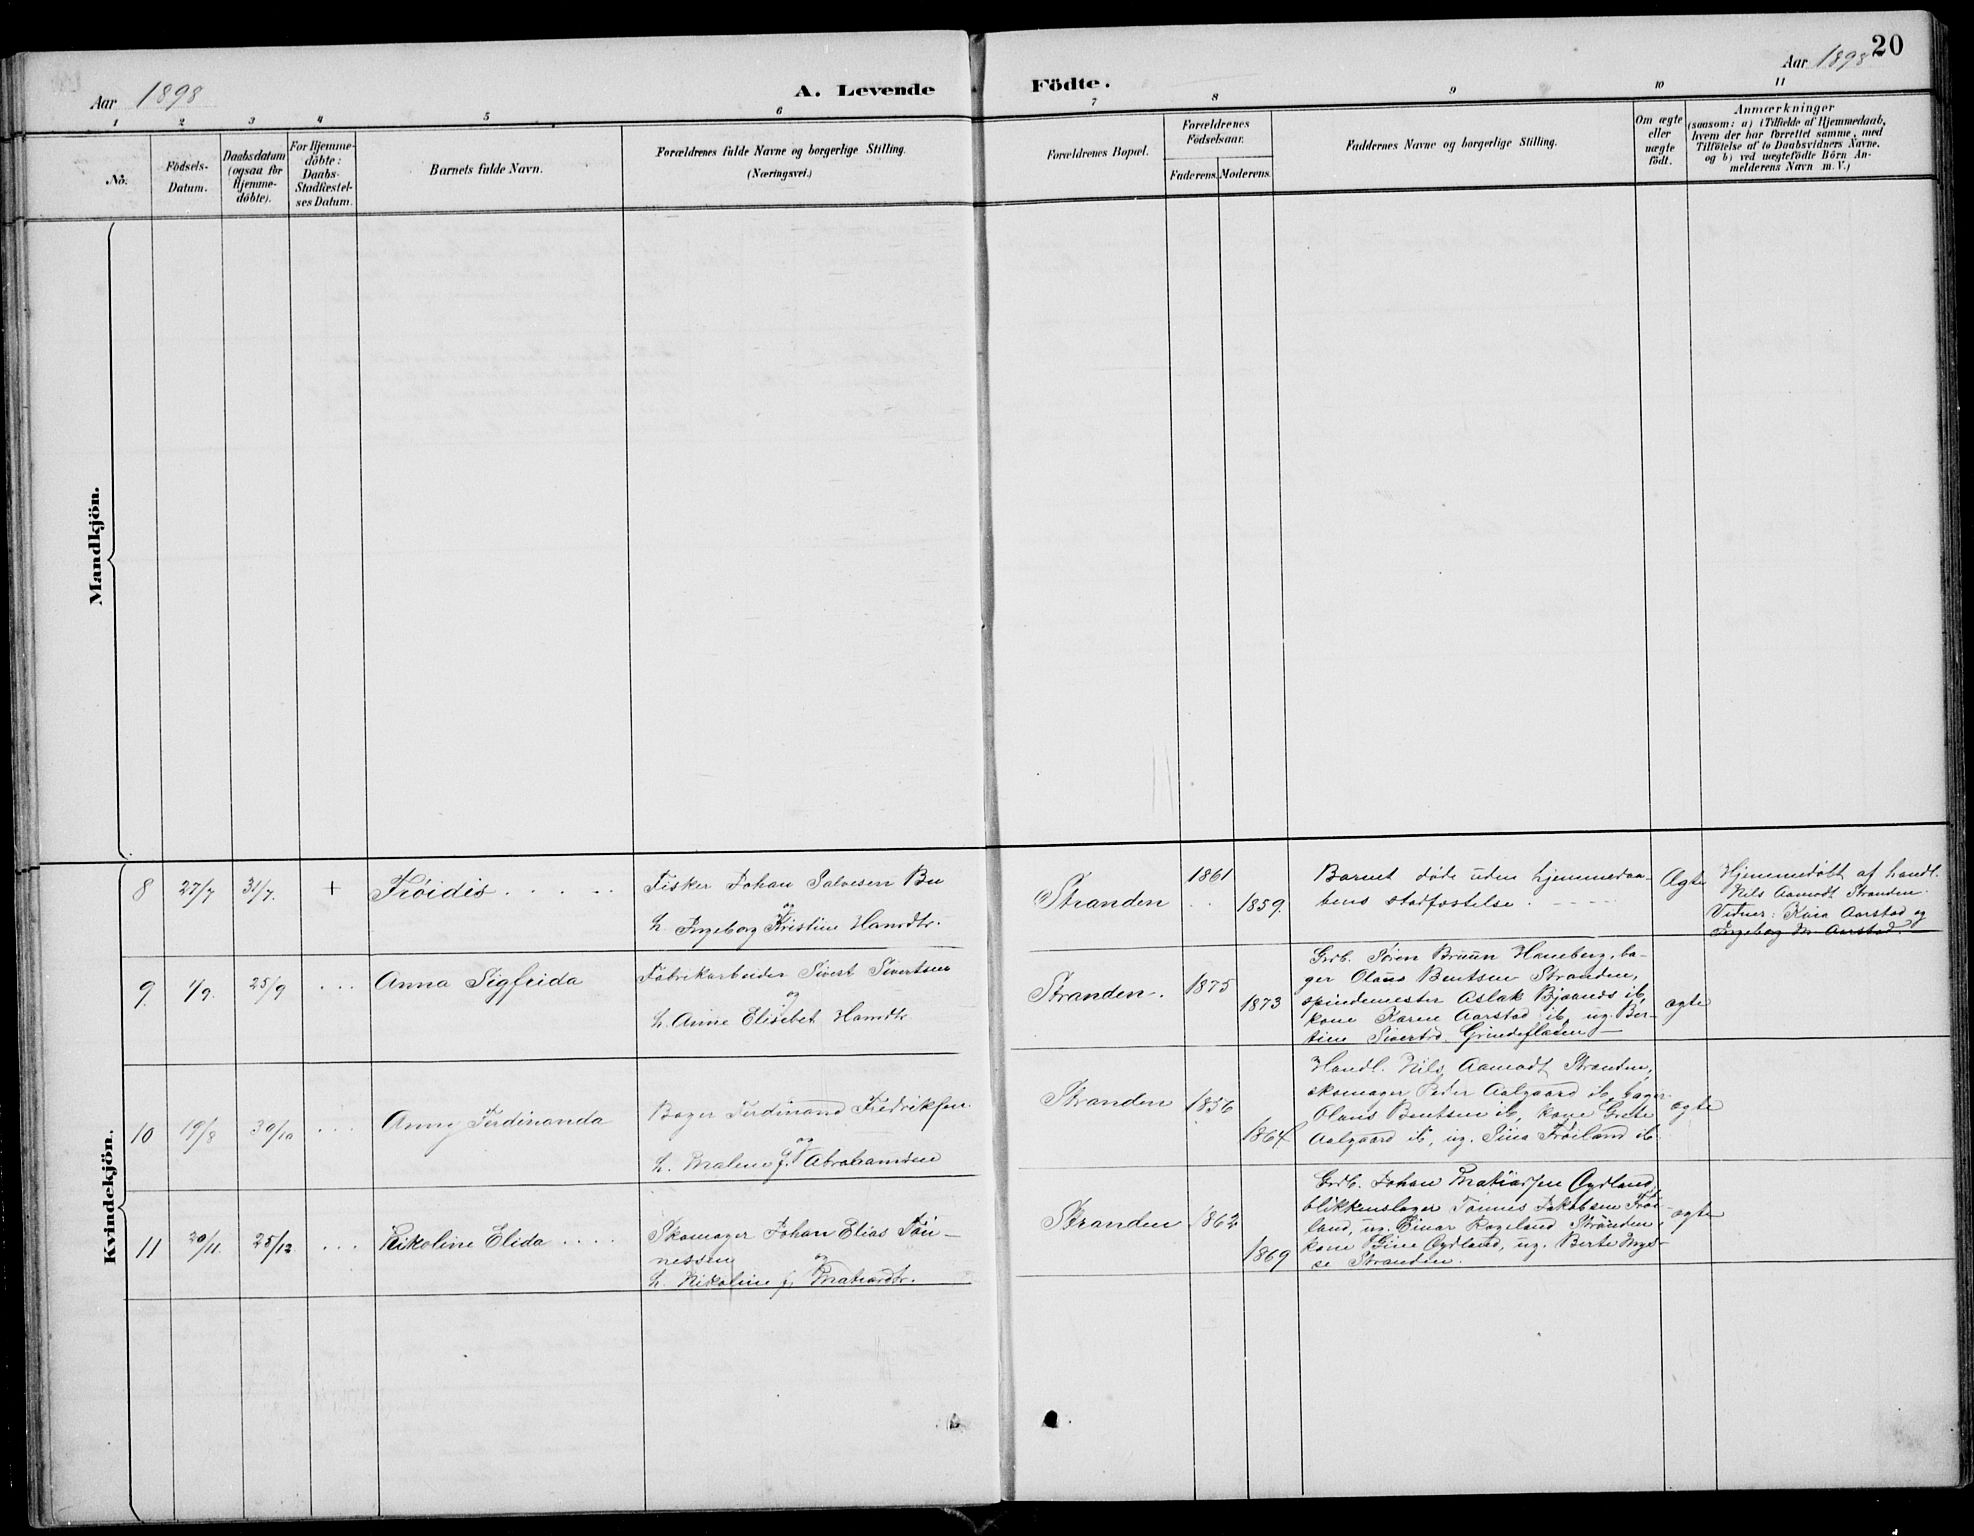 20
Aar 1898
A. Levende Födte.
Aar 1898
1 2 3 4 5 6 7 8 9 10 11
No.
Födsels-
Datum.
Daabsdatum
(ogsaa för
Hjemme-
döbte).
For Hjemme-
döbte:
Daabs-
Stadfæstel-
ses Datum.
Barnets fulde Navn.
Forældrenes fulde Navne og borgerlige Stilling.
(Næringsvei.)
Forældrenes Bopæl.
Forældrenes
Födselsaar.
Faderens. Moderens.
Faddernes Navne og borgerlige Stilling.
Om ægte
eller
uægte
födt.
Anmærkninger
(saasom: a) i Tilfælde af Hjemmedaab,
hvem der har forrettet samme, med
Tilföielse af to Daabsvidners Navne.
og b) ved uægtefödte Börn An-
melderens Navn m. V.)
Mandkjön.
Kvindekjön.
8 27/7 31/7. + Fröidis . . . . .
Fisker Johan Salvesen Bu
og
h. Ingeborg Kristine Hansdtr.
Stranden 1861 . . 1859.
Barnet döde uden hjemmedaa-
bens stadfæstelse.
Ægte
Hjemmedöbt af handl.
Nils Aamodt Stranden.
Vidner: Aarstad og
Ingeborg M. Aarstad.
9 1/9. 25/9 . . . Anna Sigfrida
Fabrikarbeider Sivert Sivertsen
og
h. Anne Elisebet Hansdtr
Stranden. 1875 1873
Grdb. Sören Bruun Haneberg, ba-
ger Olaus Bentsen Stranden,
spindemester Aslak Bjaands ib,
kone Karen Aarstad ib, ug. Ber-
tine Sivertsd. Grindeflaten
ægte
10 19/8 30/10 . . . Anny Ferdinanda
Bager Ferdinand Fredriksen
og
h. Malene f. Abrahamsen
Stranden 1856 1864
Handl. Nils Aamodt Stranden,
skomager Peder Aalgaard ib, bager
Olaus Bentsen ib, kone Grete
Aalgaard ib, ug. Sina Fröiland ib.
ægte
11 20/11. 25/12 . . . Nikoline Elida . . . .
Skomager Johan Elias Tön-
nessen
og
h. Nikoline f. Matiasdtr.
Stranden 1862 1869
Grdb. Johan Matiassen Oydland,
blikkenslager Tönnes Jakobsen Fröi-
land, ug. Einar Rageland Stranden,
kone Gine Oydland, ug. Berte
Stranden.
ægte